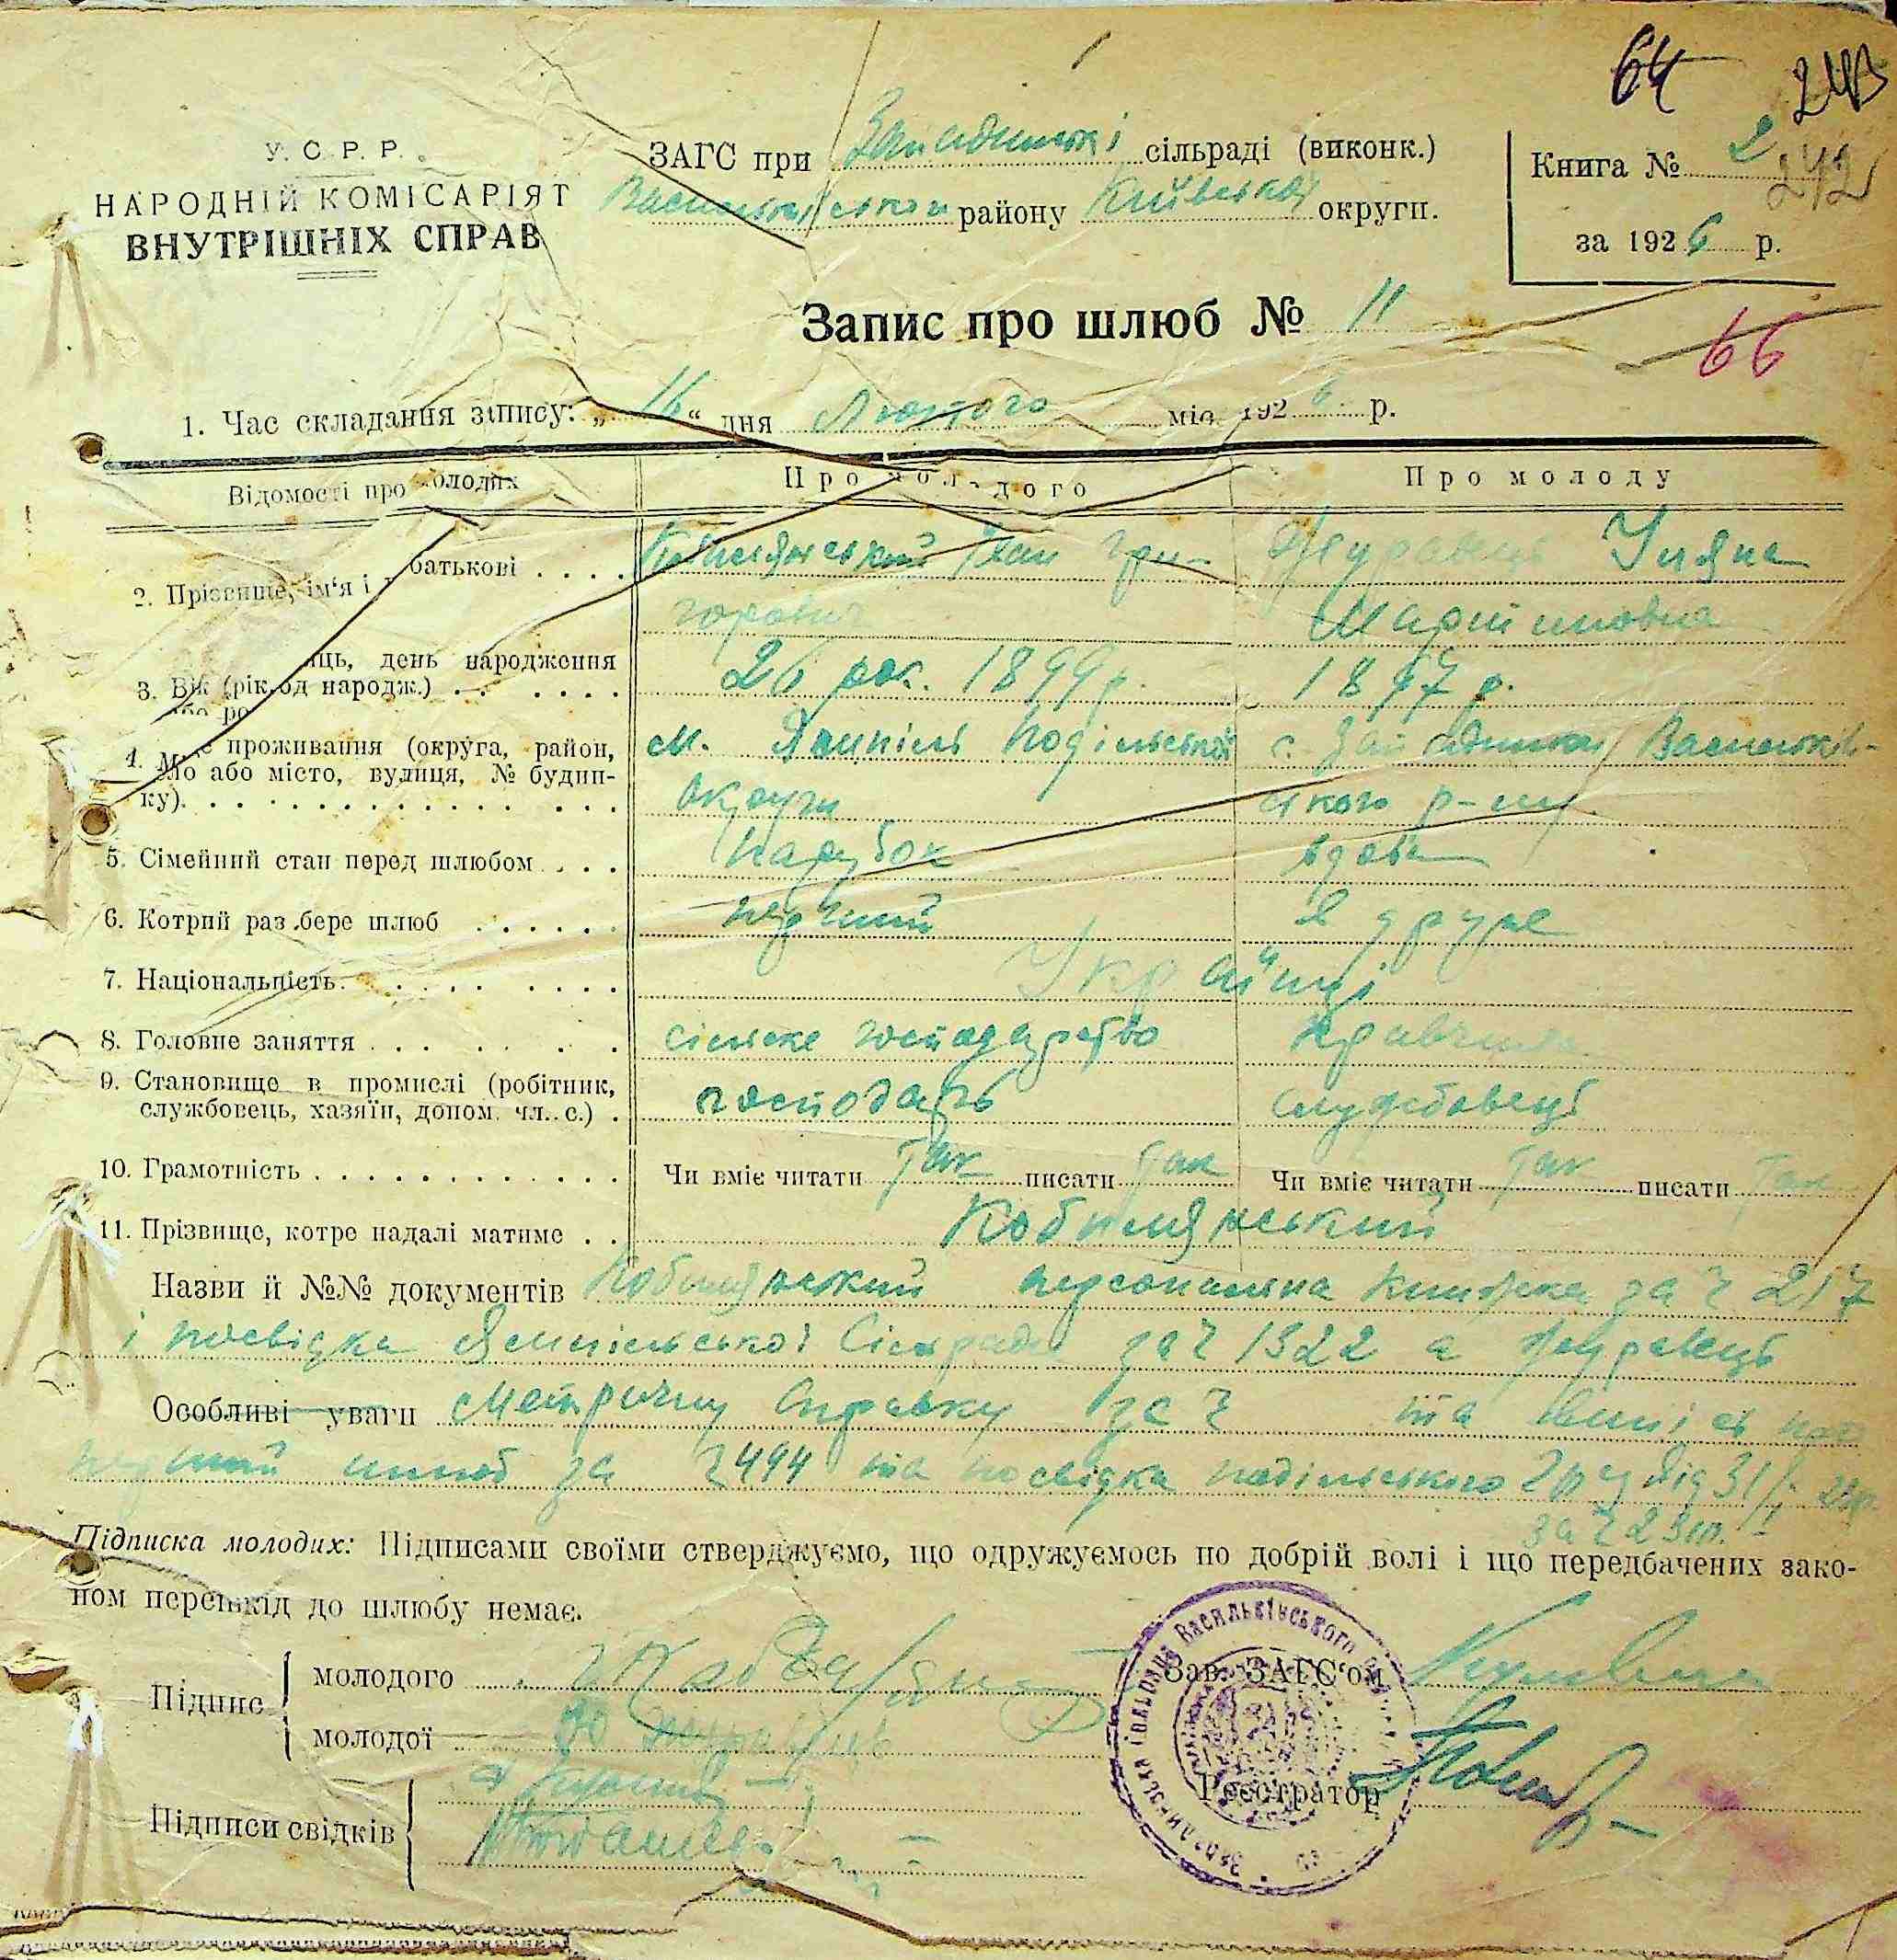 64 243
У. С. Р. Р.
НАРОДНІЙ КОМІСАРІЯТ
ВНУТРІШНІХ СПРАВ
ЗАГС при Западинські сільраді (виконк.)
Васильківського району Київської округи.
Книга № 2 242
за 1926 р.
Запис про шлюб № 11
66
1. Час складання запису: „16“ дня Лютого міс. 1926 р.
Відомості про молодих Про молодого Про молоду
2. Прізвище, ім'я і по батькові . . . . Кобилянський Іван Гри- Журавець Уляна
горович Мартиновна
3. Вік (рік, місяць, день народження або рік од народж.) . . . . . . 26 рок. 1899 р. 1897 р.
4. Місце проживання (округа, район, м. Ямпіль Подільської с. Западинка Васильків-
село або місто, вулиця, № будин-
ку). . . . . . . . . . . . . . . округи ського р-ну
5. Сімейний стан перед шлюбом . . . . Парубок вдова
6. Котрий раз бере шлюб . . . . . . перший в друге
7. Національність . . . . . . . . Українці
8. Головне заняття . . . . . . . сільске господарство Кравчиха
9. Становище в промислі (робітник, господарь службовець
службовець, хазяїн, допом. чл. с.) .
10. Грамотність . . . . . . . . . . . . Чи вміє читати Так писати Так Чи вміє читати Так писати Так
11. Прізвище, котре надалі матиме . . Кобилянський
Назви й №№ документів Кобилянський персональна книжка за ч 217
і посвідка Ямпільської Сільради за ч 1322 а Журавець
Особливі уваги Метричну справку за ч та випись про
перший шлюб за ч 494 та посвідка подільського від 31/
за ч 23
Підписка молодих: Підписами своїми стверджуємо, що одружуємось по добрій волі і що передбачених зако-
ном перешкід до шлюбу немає.
Підпис молодого
молодої Журавець
Підписи свідків
Зав. ЗАГС'ом
Реєстратор
Васильківського